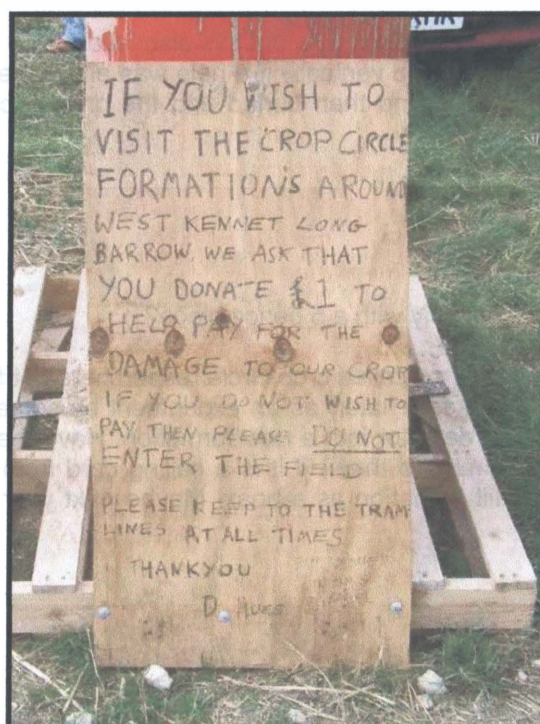 IF YOU WISH TO
VISIT THE CROP CIRCLE
FORMATION'S AROUND
WEST KENNET LONG
BARROW. WE ASK THAT
YOU DONATE £1 TO
HELP PAY FOR THE
DAMAGE TO OUR CROP
IF YOU DO NOT WISH TO
PAY THEN PLEASE DO NOT
ENTER THE FIELD
PLEASE KEEP TO THE TRAM
LINES AT ALL TIMES
THANKYOU
D.